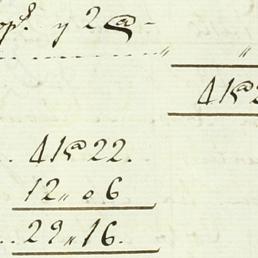 y 2 @ -
" "
41@2
.. 41@22.
12 " 0 6
.. 29 " 16.